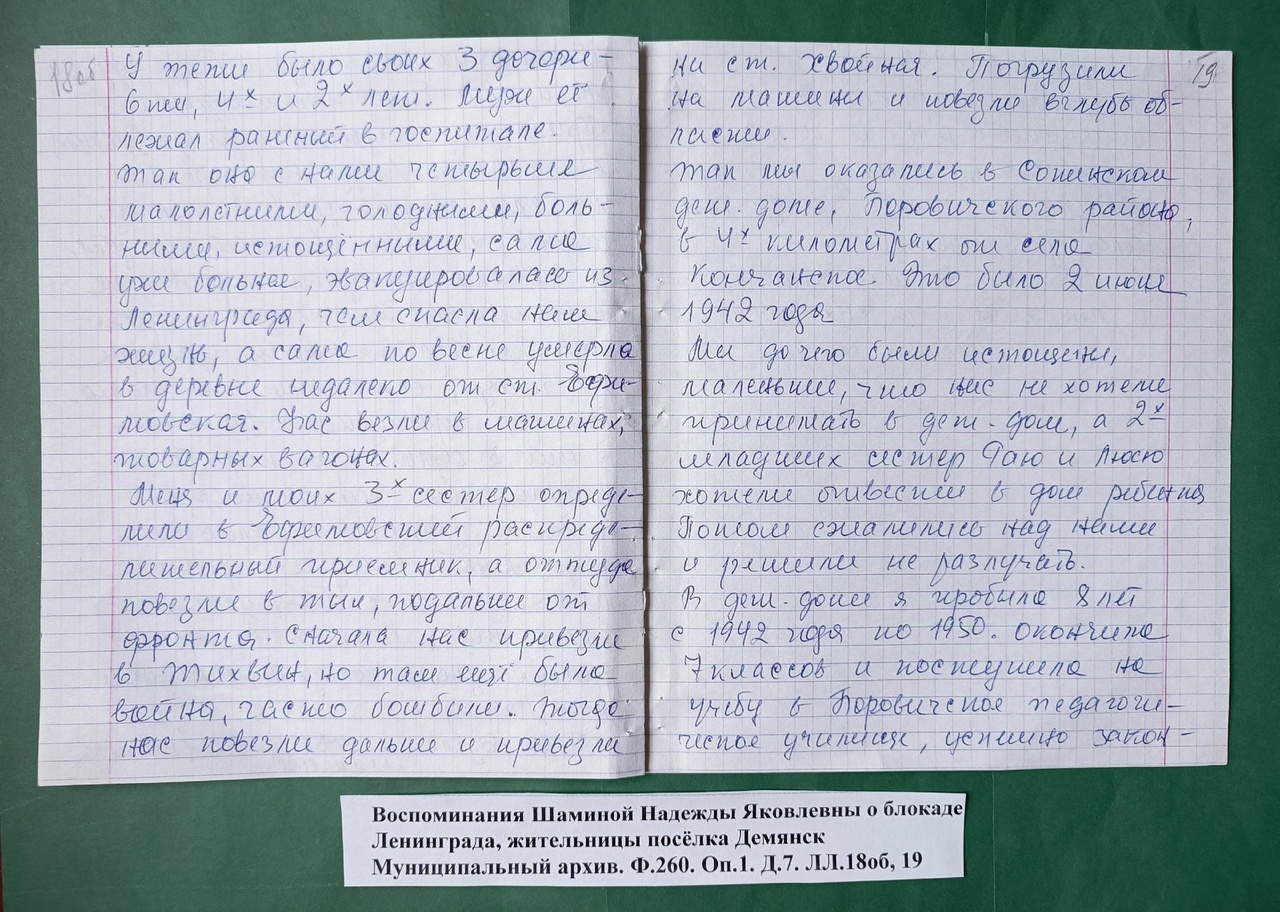 18об
У тёти было своих 3 дочери-
6ти, 4х и 2х лет. Муж её
лежал раненый в госпитале.
Так она с нами четырьмя
малолетними, голодными, боль-
ными, истощёнными, сама
уже больная, эвакуировалась из
Ленинграда, чем спасла нам
жизнь, а сама по весне умерла
в деревне недалеко от ст. Ефи-
мовская. Нас везли в машинах,
товарных вагонах.
Меня и моих 3х сестер опреде-
лили в Ефимовский распреде-
лительный приемник, а оттуда
повезли в тыл, подальше от
фронта. Сначала нас привезли
в Тихвин, но там ещё была
война, часто бомбили. Тогда
нас повезли дальше и привезли
19
на ст. Хвойная. Погрузили
на машины и повезли вглубь об-
ласти.
Так мы оказались в Сопинском
дет. доме, Боровичского района,
в 4х километрах от села
Кончанское. Это было 2 июня
1942 года
Мы до чего были истощены,
маленькие, что нас не хотели
принимать в дет. дом, а 2х
младших сестер Раю и Люсю
хотели отвести в дом ребенка
Потом сжалились над нами
и решили не разлучать.
В дет. доме я пробыла 8 лет
с 1942 года по 1950. Окончила
7 классов и поступила на
учебу в Боровичское педагоги-
ческое училище, успешно закон-
Воспоминания Шаминой Надежды Яковлевны о блокаде
Ленинграда, жительницы посёлка Демянск
Муниципальный архив. Ф.260. Оп.1. Д.7. ЛЛ.18об, 19